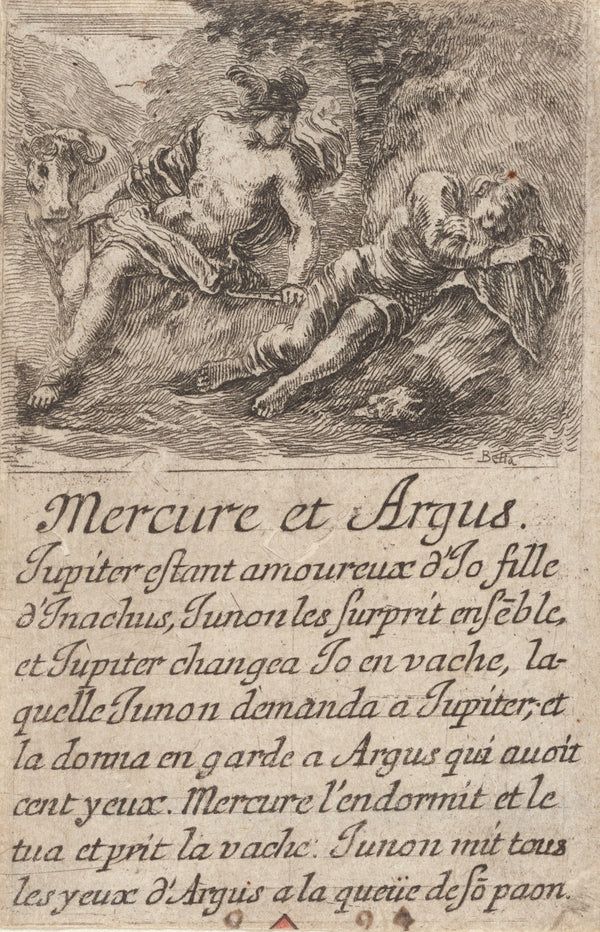 Bella
Mercure et Argus.
Jupiter estant amoureux d'Jo fille
d'Jnachus, Junon les surprit ensẽble,
et Jupiter changea Jo en vache, la-
quelle Junon demanda a Jupiter, et
la donna en garde a Argus qui avoit
cent yeux. Mercure l'endormit et le
tua et prit la vache. Junon mit tous
les yeux d'Argus a la queüe de sõ paon.